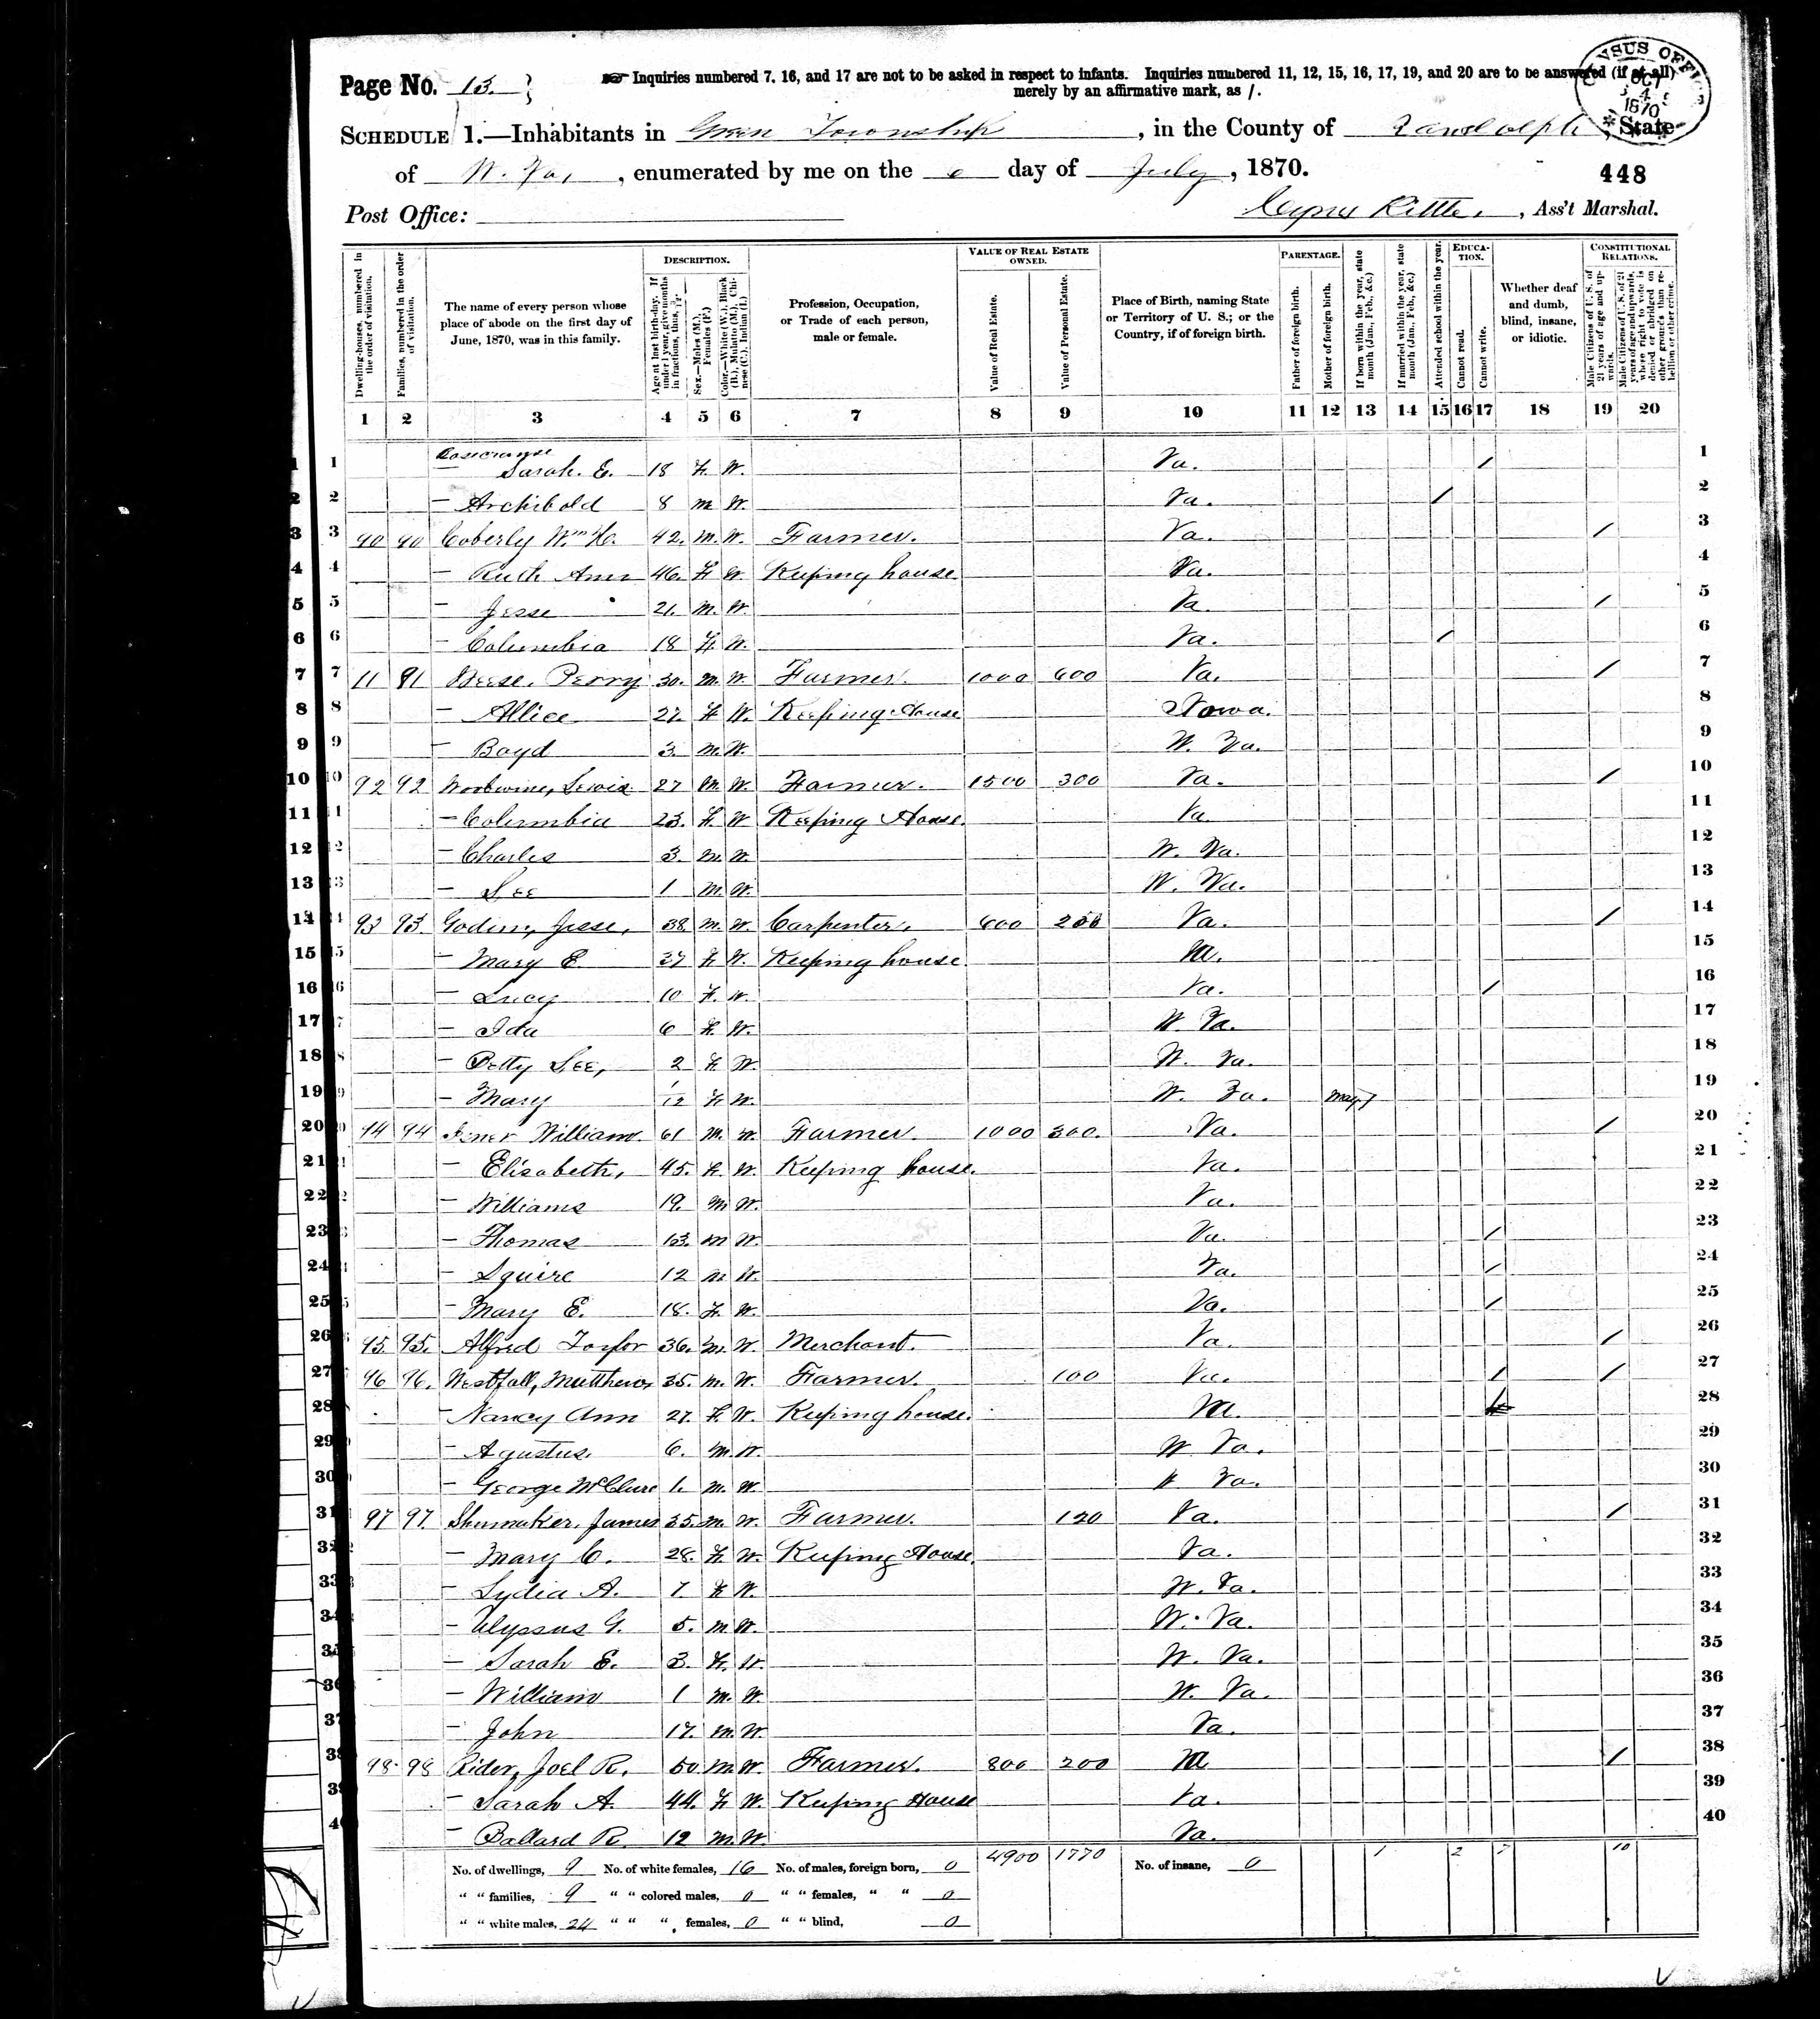 Page No. 13.
Inquiries numbered 7, 16, and 17 are not to be asked in respect to infants. Inquiries numbered 11, 12, 15, 16, 17, 19, and 20 are to be answered (if at all)
merely by an affirmative mark, as /.
CENSUS OFFICE 1870
SCHEDULE 1.—Inhabitants in Green Township, in the County of Randolph, State
of W. Va, enumerated by me on the 6 day of July, 1870.
448
Post Office:
Ass't Marshal.
Dwelling-houses, numbered in the order of visitation.
Families, numbered in the order of visitation.
The name of every person whose place of abode on the first day of June, 1870, was in this family.
DESCRIPTION.
Age at last birth-day. If under 1 year, give months in fractions, thus, 3/12.
Sex.—Males (M.), Females (F.)
Color.—White (W.), Black (B.), Mulatto (M.), Chinese (C.), Indian (I.)
Profession, Occupation, or Trade of each person, male or female.
VALUE OF REAL ESTATE OWNED.
Value of Real Estate.
Value of Personal Estate.
Place of Birth, naming State or Territory of U. S.; or the Country, if of foreign birth.
PARENTAGE.
Father of foreign birth.
Mother of foreign birth.
If born within the year, state month (Jan., Feb., &c.)
If married within the year, state month (Jan., Feb., &c.)
Attended school within the year.
EDUCATION.
Cannot read.
Cannot write.
Whether deaf and dumb, blind, insane, or idiotic.
CONSTITUTIONAL RELATIONS.
Male Citizens of U. S. of 21 years of age and upwards.
Male Citizens of U. S. of 21 years of age and upwards, where right to vote is denied or abridged on other grounds than rebellion or other crime.
1 2 3 4 5 6 7 8 9 10 11 12 13 14 15 16 17 18 19 20
1 Sarah. E. 18 F. W. Va. / 1
2 — Archibold 8 m W. Va. / 2
3 90 90 Coberly Wm H. 42. M. W. Farmer. Va. / 3
4 — Ruth Ann 46. F W. Keeping house Va. 4
5 — Jesse 21. M. W. Va / 5
6 — Columbia 18 F. W. Va. / 6
7 11 91 Perry 30. M. W. Farmer. 1000 600 Va. / 7
8 — Allice 27. F W. Keeping House Iowa. 8
9 — Boyd 3. M. W. W. Va. 9
10 92 92 Lewis 27 M. W. Farmer. 1500 300 Va. / 10
11 — Columbia 23. F. W Keeping House. Va. 11
12 — Charles 3. M. W. W. Va. 12
13 — Lee 1 M. W. W. Va. 13
14 93 93. Jesse, 38. M. W. Carpenter. 600 200 Va. / 14
15 — Mary E 37 F. W. Keeping house Va. 15
16 — Lucy 10 F. W. Va. / 16
17 — Ida 6 F. W. W Va. 17
18 — Betty Lee, 2 F. W. W. Va. 18
19 — Mary 1/12 F. W. W. Va. May 19
20 94 94 Isner William. 61 M. W. Farmer. 1000 300. Va. / 20
21 — Elisabeth, 45. F. W. Keeping house. Va. 21
22 — Williams 19. M W. Va. 22
23 — Thomas 13. M W. Va. / 23
24 — Squire 12 M W. Va. / 24
25 — Mary E. 18. F. W. Va. / 25
26 95. 95. Alfred Taylor 36. M. W. Merchant. Va. / 26
27 96 96. Westfall, Matthew, 35. M. W. Farmer. 100 Va. / / 27
28 — Nancy Ann 27. F. W. Keeping house. Va. 28
29 — Agustus. 6. M. W. W Va. 29
30 — George McClure 1. M. W. W Va. 30
31 97 97. Shumaker, James 35. M. W. Farmer. 120 Va. / 31
32 — Mary C. 28. F. W. Keeping House Va. 32
33 — Lydia A. 7. F W. W. Va. 33
34 — Ulyssus G. 5. M W. W. Va. 34
35 — Sarah E. 3. F. W. W. Va. 35
36 — William 1 M. W. W. Va. 36
37 — John 17. M. W. Va. 37
38 98 98 Rider, Joel R. 50 M W. Farmer. 800 200 Va / 38
39 — Sarah A. 44. F W. Keeping House Va. 39
40 — Ballard R. 12 M. W. Va. 40
No. of dwellings, 9 No. of white females, 16 No. of males, foreign born, 0 4900 1770 No. of insane, 0 1 2 7 10
" " families, 9 " " colored males, 0 " " females, " " 0
" " white males, 24 " " " females, 0 " " blind, 0